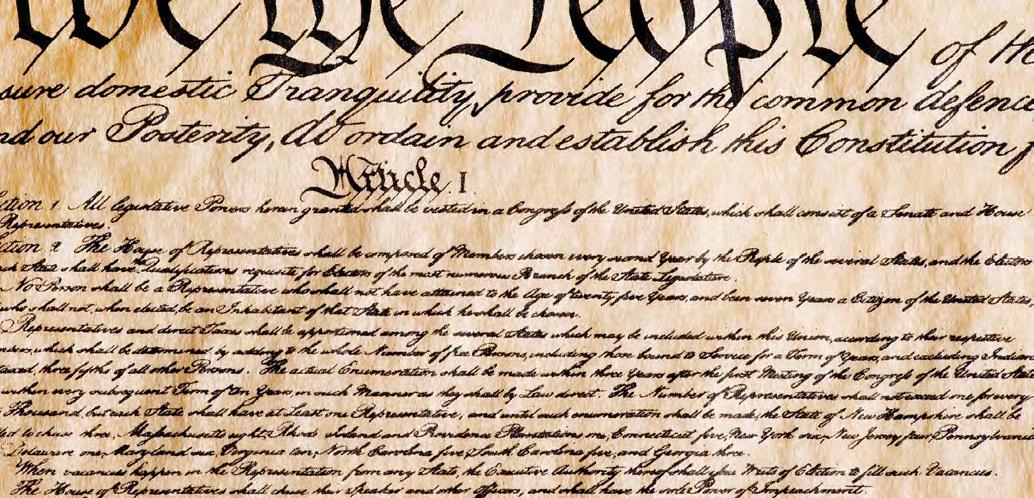 We the People of the
sure domestic Tranquility, provide for the common defence
nd our Posterity, do ordain and establish this Constitution f
Article. I.
ction 1. All legislative Powers herein granted shall be vested in a Congress of the United States, which shall consist of a Senate and House
Representatives.
ction 2. The House of Representatives shall be composed of Members chosen every second Year by the People of the several States, and the Electors
ch State shall have the Qualifications requisite for Electors of the most numerous Branch of the State Legislature.
No Person shall be a Representative who shall not have attained to the Age of twenty five Years, and been seven Years a Citizen of the United States,
who shall not, when elected, be an Inhabitant of that State in which he shall be chosen.
Representatives and direct Taxes shall be apportioned among the several States which may be included within this Union, according to their respective
mbers, which shall be determined by adding to the whole Number of free Persons, including those bound to Service for a Term of Years, and excluding Indians
taxed, three fifths of all other Persons. The actual Enumeration shall be made within three Years after the first Meeting of the Congress of the United State
within every subsequent Term of ten Years, in such Manner as they shall by Law direct. The Number of Representatives shall not exceed one for every
Thousand, but each State shall have at Least one Representative; and until such enumeration shall be made, the State of New Hampshire shall be
led to chuse three, Massachusetts eight, Rhode Island and Providence Plantations one, Connecticut five, New York six, New Jersey four, Pennsylvania
Delaware one, Maryland six, Virginia ten, North Carolina five, South Carolina five, and Georgia three.
When vacancies happen in the Representation from any State, the Executive Authority thereof shall issue Writs of Election to fill such Vacancies.
The House of Representatives shall chuse their Speaker and other Officers; and shall have the sole Power of Impeachment.